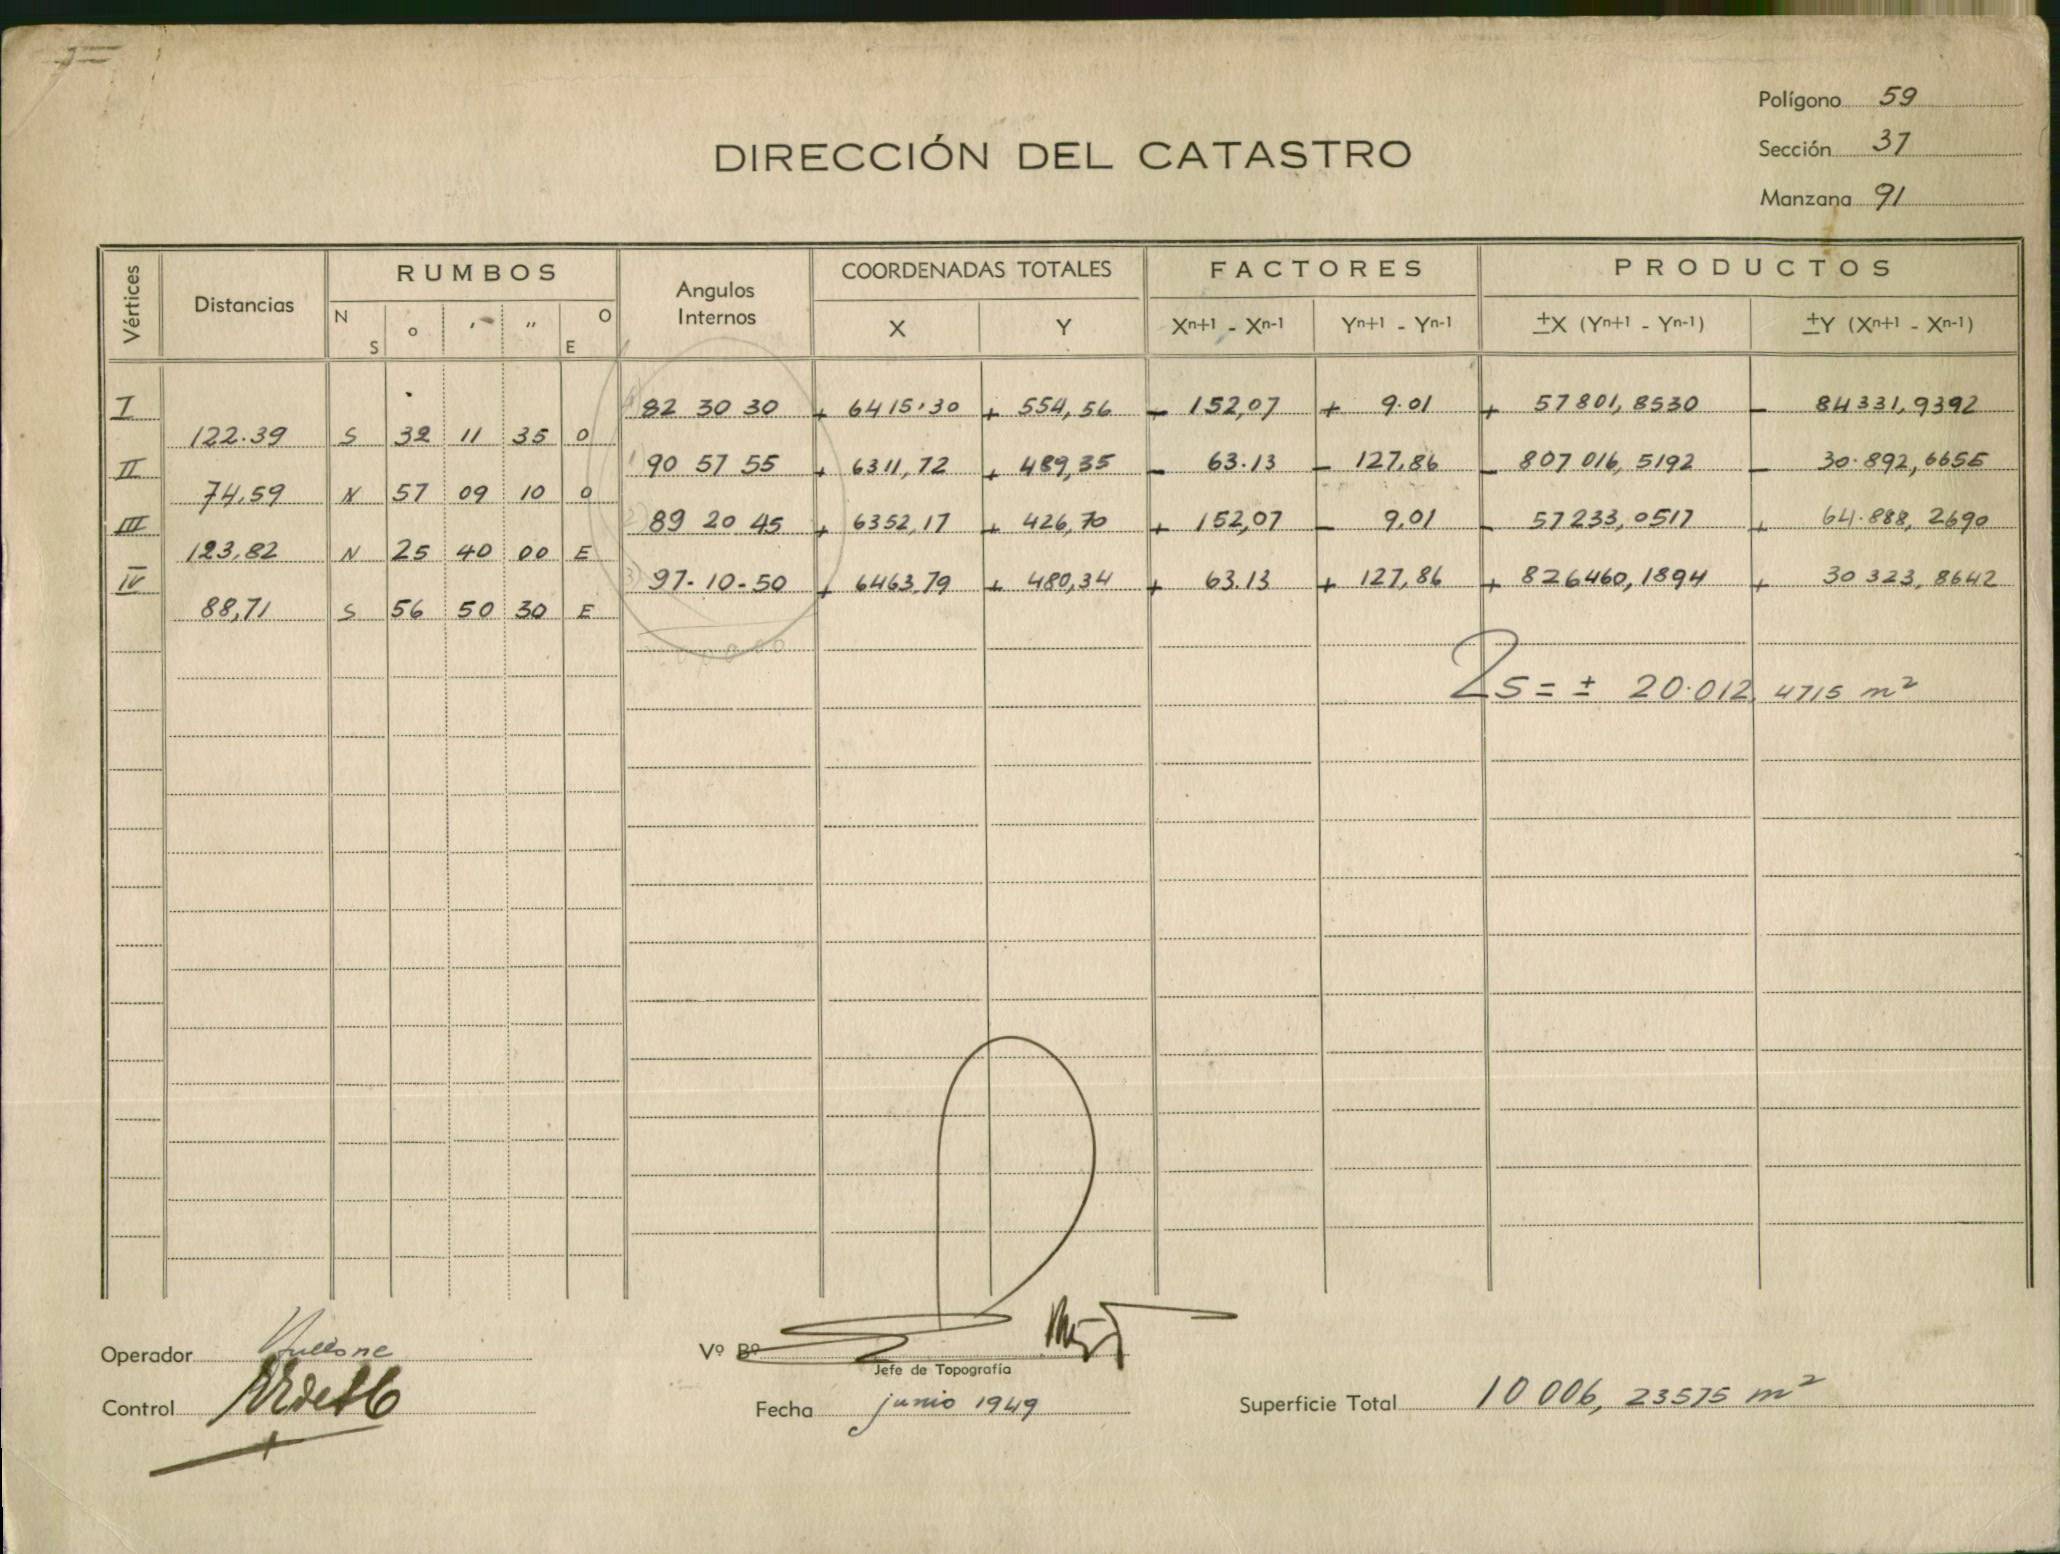 Polígono 59
DIRECCIÓN DEL CATASTRO
Sección 37
Manzana 91
Vértices Distancias RUMBOS Angulos Internos COORDENADAS TOTALES FACTORES PRODUCTOS
N S o ' " O E X Y Xn+1 - Xn-1 Yn+1 - Yn-1 ±X (Yn+1 - Yn-1) ±Y (Xn+1 - Xn-1)
I 82 30 30 + 6415.30 + 554,56 - 152,07 + 9.01 + 57801,8530 - 84331,9392
122.39 S 32 11 35 O
II 90 57 55 + 6311,72 + 489,35 - 63.13 - 127,86 - 807016,5192 - 30.892,6655
74,59 N 57 09 10 O
III 89 20 45 + 6352,17 + 426,70 + 152,07 - 9,01 - 57233,0517 + 64.888,2690
123,82 N 25 40 00 E
IV 97-10-50 + 6463,79 + 480,34 + 63.13 + 127,86 + 826460,1894 + 30323,8642
88,71 S 56 50 30 E
2s = ± 20.012,4715 m²
Operador
Vº Bº
Jefe de Topografía
Control
Fecha junio 1949
Superficie Total 10006,23575 m²